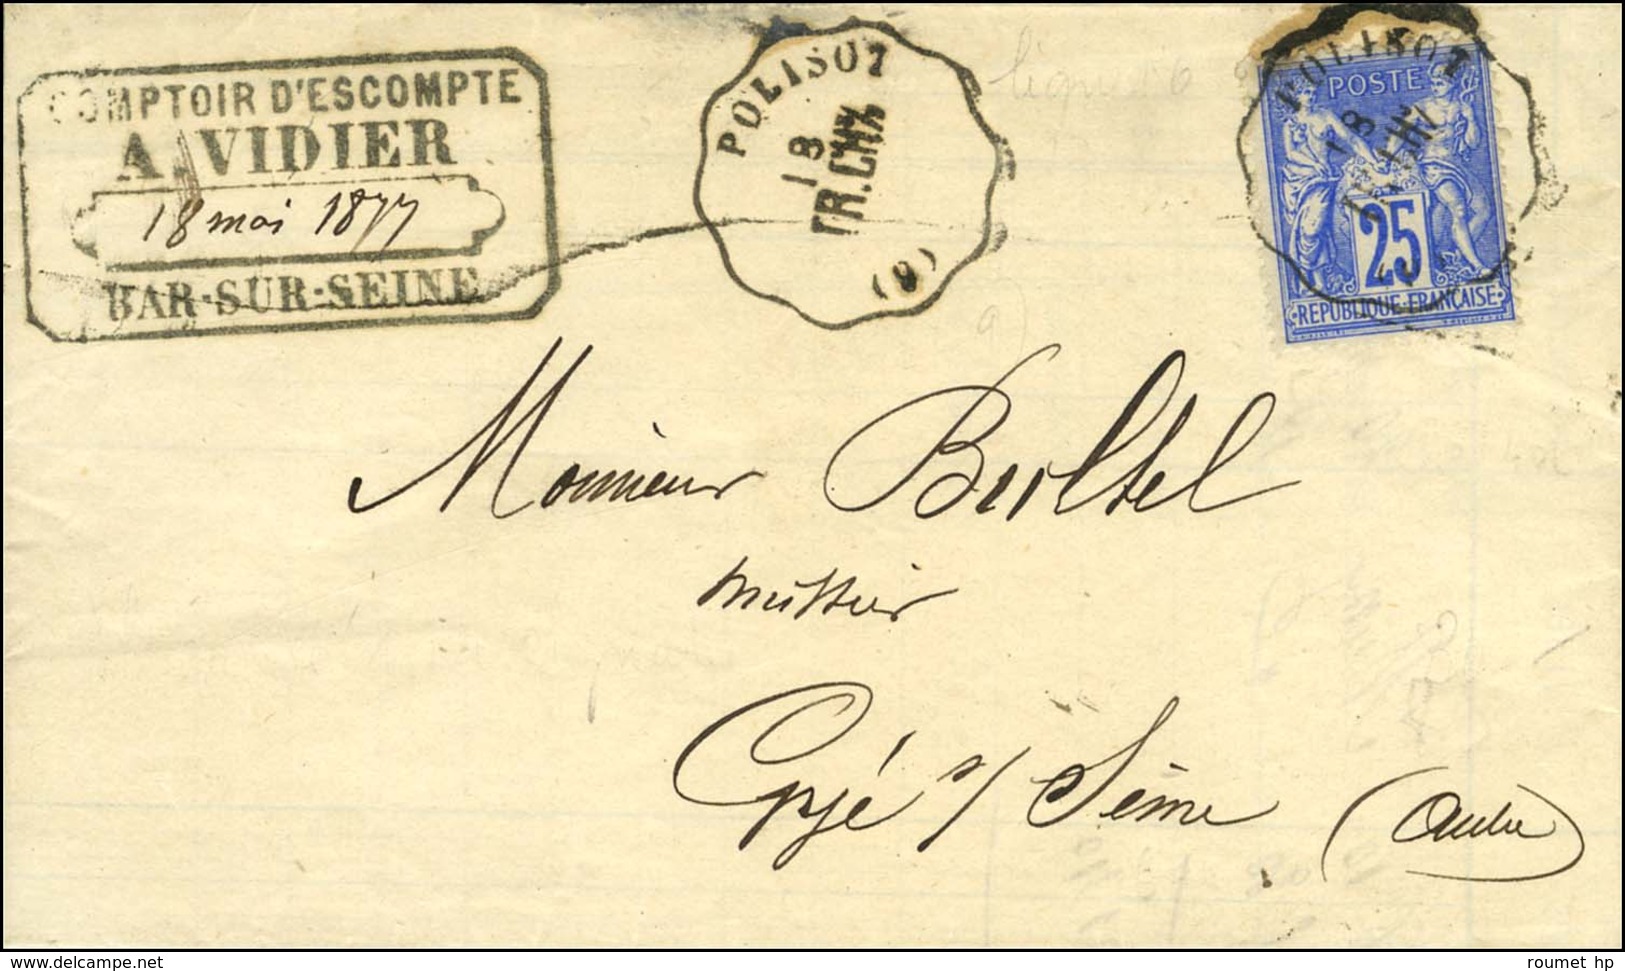 COMPTOIR D'ESCOMPTE
A. VIDIER
18 mai 1877
BAR-SUR-SEINE
POLISOT
18
TR.CHX
(8)
POLISOT
18
POSTE
25
REPUBLIQUE FRANÇAISE
Monsieur Berthel
Gyé s/ Seine (Aube)
www.delcampe.net
roumet hp